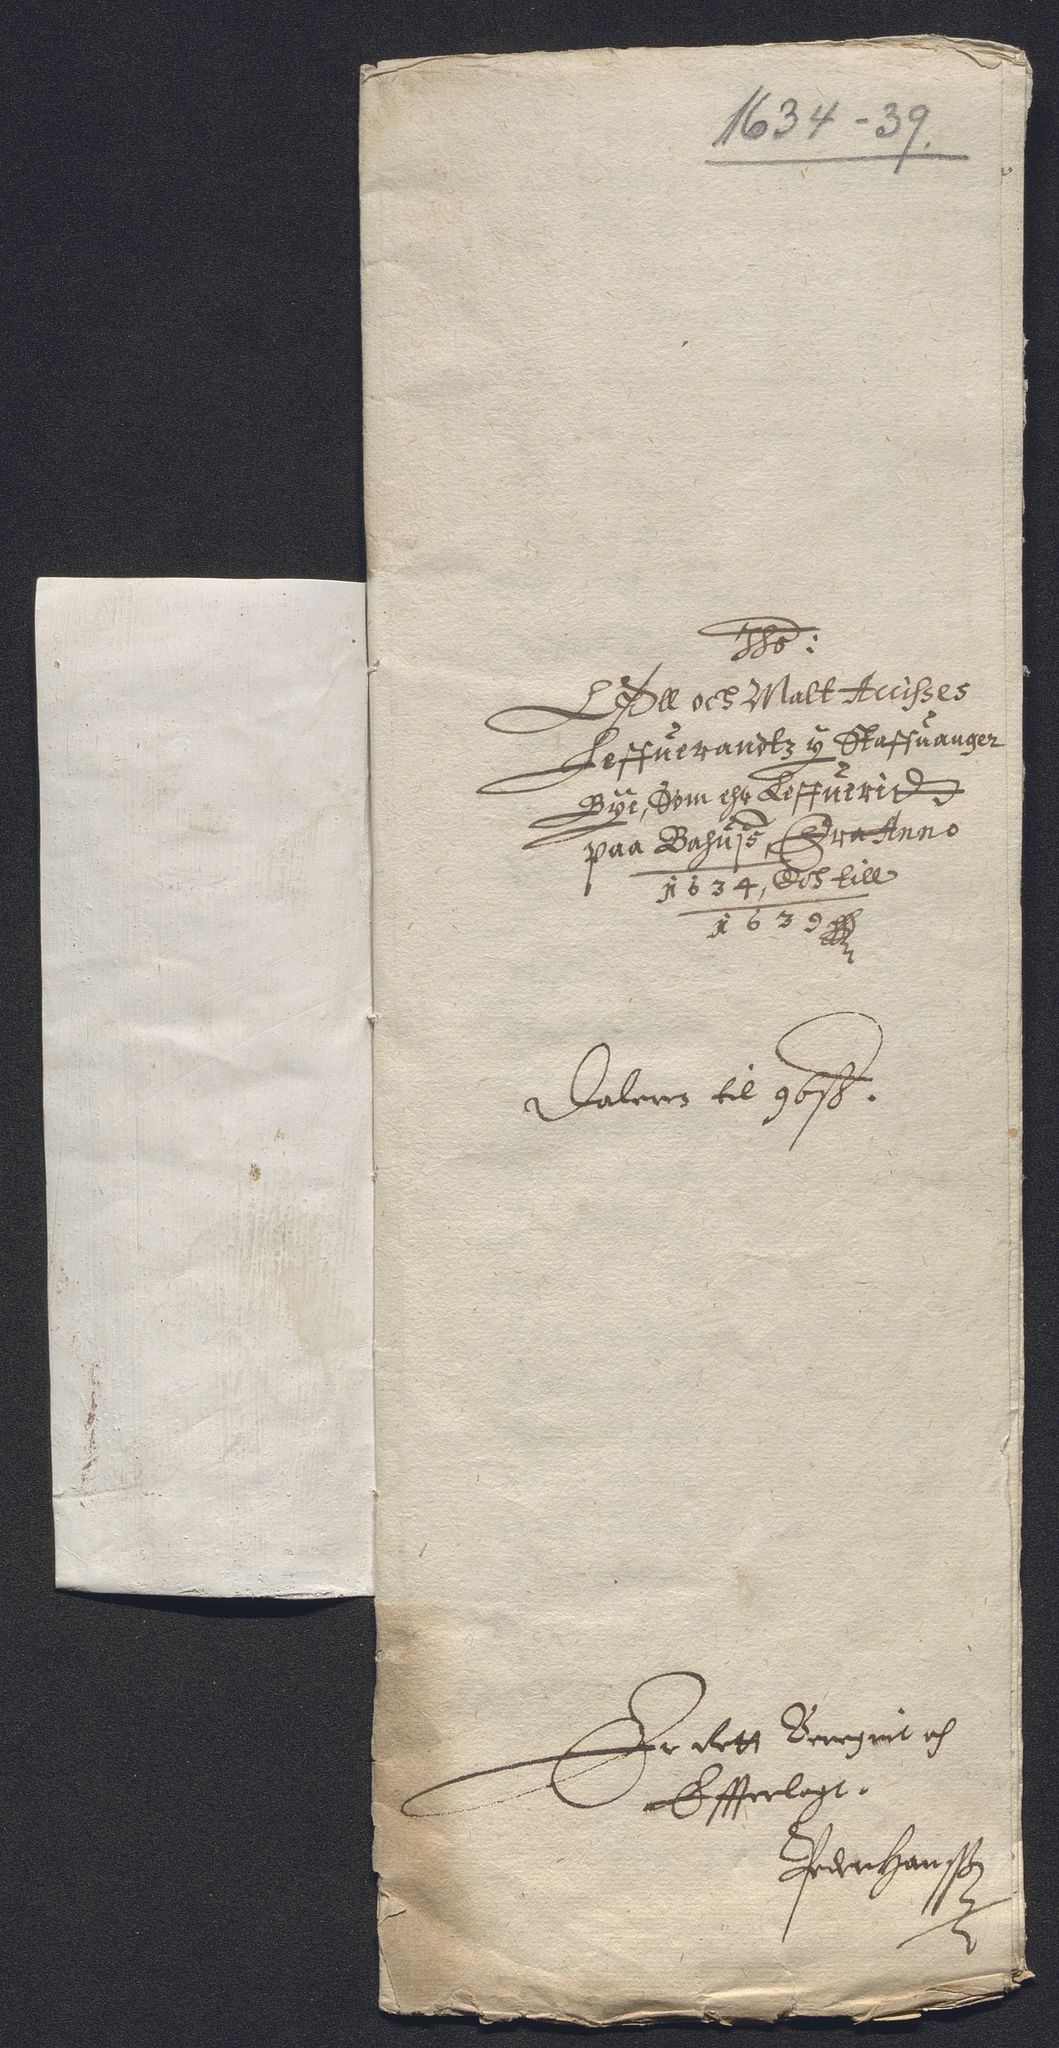 1634-39.
Jhs:
Øll och Malt Accisses
Leffuerandtz y Staffuanger
Bye, Som ehr Leffuerid
paa Bahuus, Fra Anno
1634, Och till
1639
Daleren til 96 ß.
Er rett Beregnit och
Offuerlagt.
Peder Hanssøn